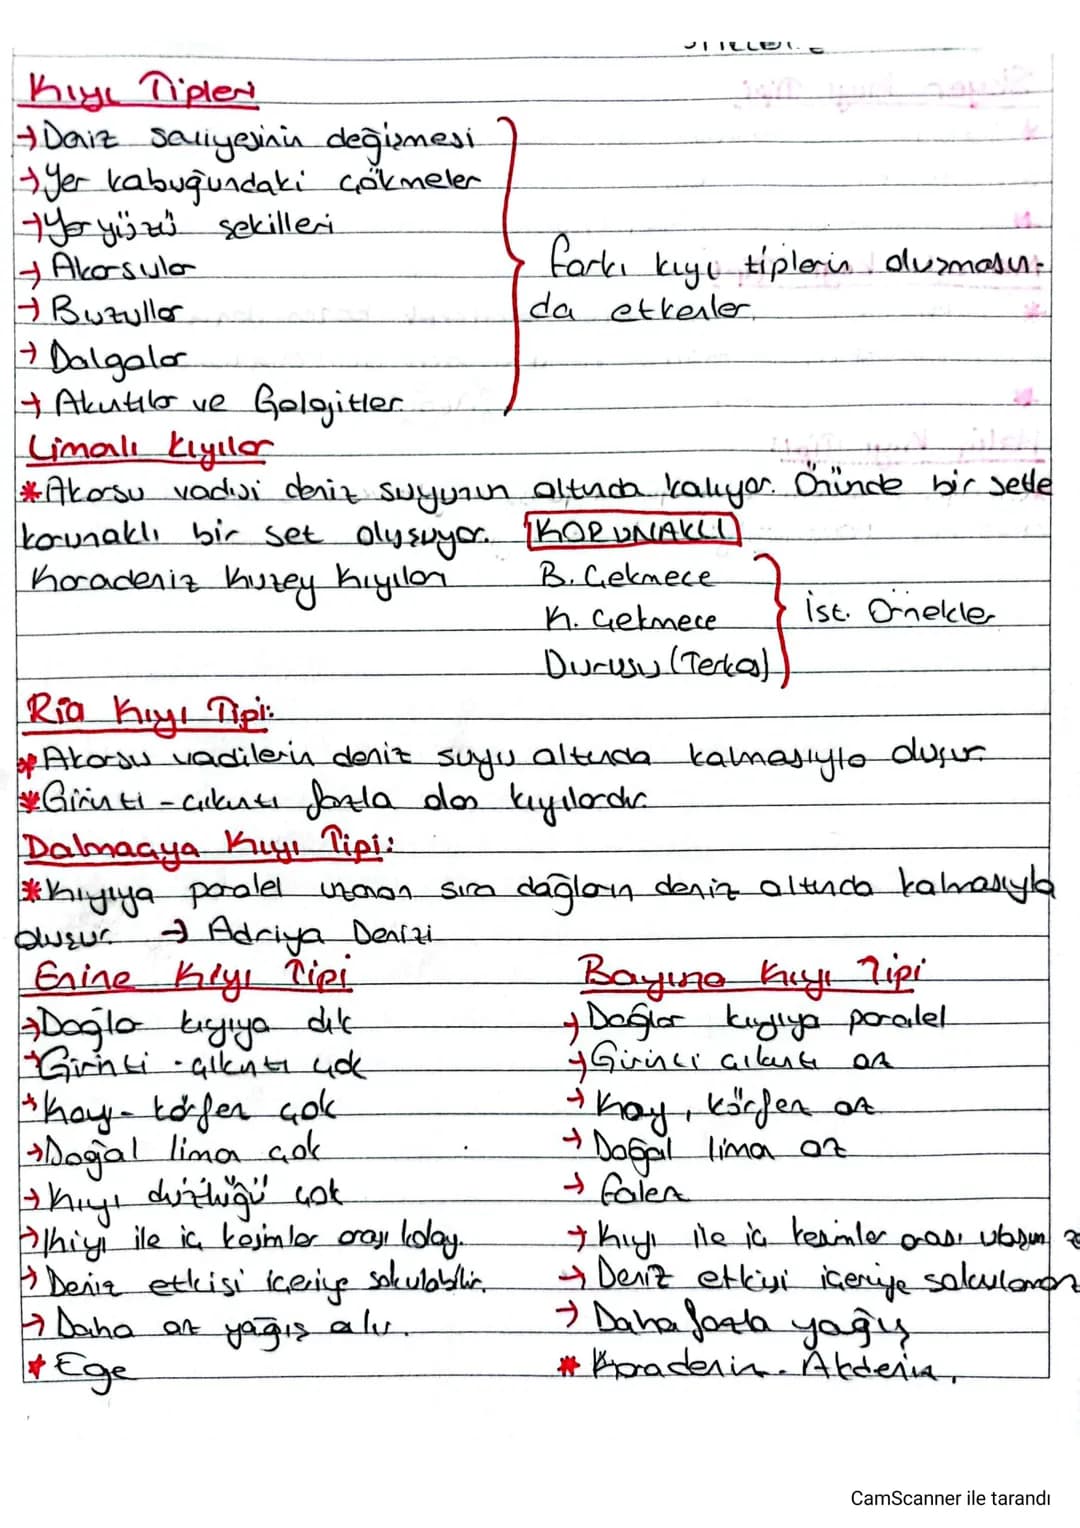 Kıyı Tipleri
→ Deniz seviyesinin değişmesi
→ Yer kabuğundaki çökmeler
→ Yer yüzü sekilleri
→ Akarsular
→ Buzullar
→ Dalgalar
→ Akıntılar ve Gelgitler.
farkı kıyı tiplerin oluşmasın-
da etkenler.
Limalı kıyılar
* Akarsu vadisi deniz suyunun altında kalıyor. Önünde bir setle
korunaklı bir set oluşuyor. KORUNAKLI
Karadeniz Kuzey Kıyıları
B. Çekmece
K. Çekmece
Durusu (Terkos)
İst. Örnekler
Ria Kıyı Tipi:
* Akarsu vadilerin deniz suyu altında kalmasıyla oluşur.
* Girinti - çıkıntı fazla olan kıyılardır.
Dalmaçya Kıyı Tipi:
* Kıyıya paralel uzanan sıra dağların deniz altında kalmasıyla
oluşur. → Adriya Denizi
Enine Kıyı Tipi
→ Dağlar kıyıya dik
→ Girinti - çıkıntı çok
→ Koy - körfez çok
→ Doğal lima çok
→ Kıyı düzlüğü çok
→ Kıyı ile iç kesimler arası kolay.
→ Deniz etkisi içeriye sokulabilir.
→ Daha az yağış alır.
* Ege
Boyuna Kıyı Tipi
→ Dağlar kıyıya paralel
→ Girinti çıkıntı az
→ Koy, körfez az
→ Doğal lima az
→ falez
→ Kıyı ile iç kesimler arası ulaşım z
→ Deniz etkisi içeriye sokulamaz
→ Daha fazla yağış
* Karadeniz - Akdeniz.
CamScanner ile tarandı